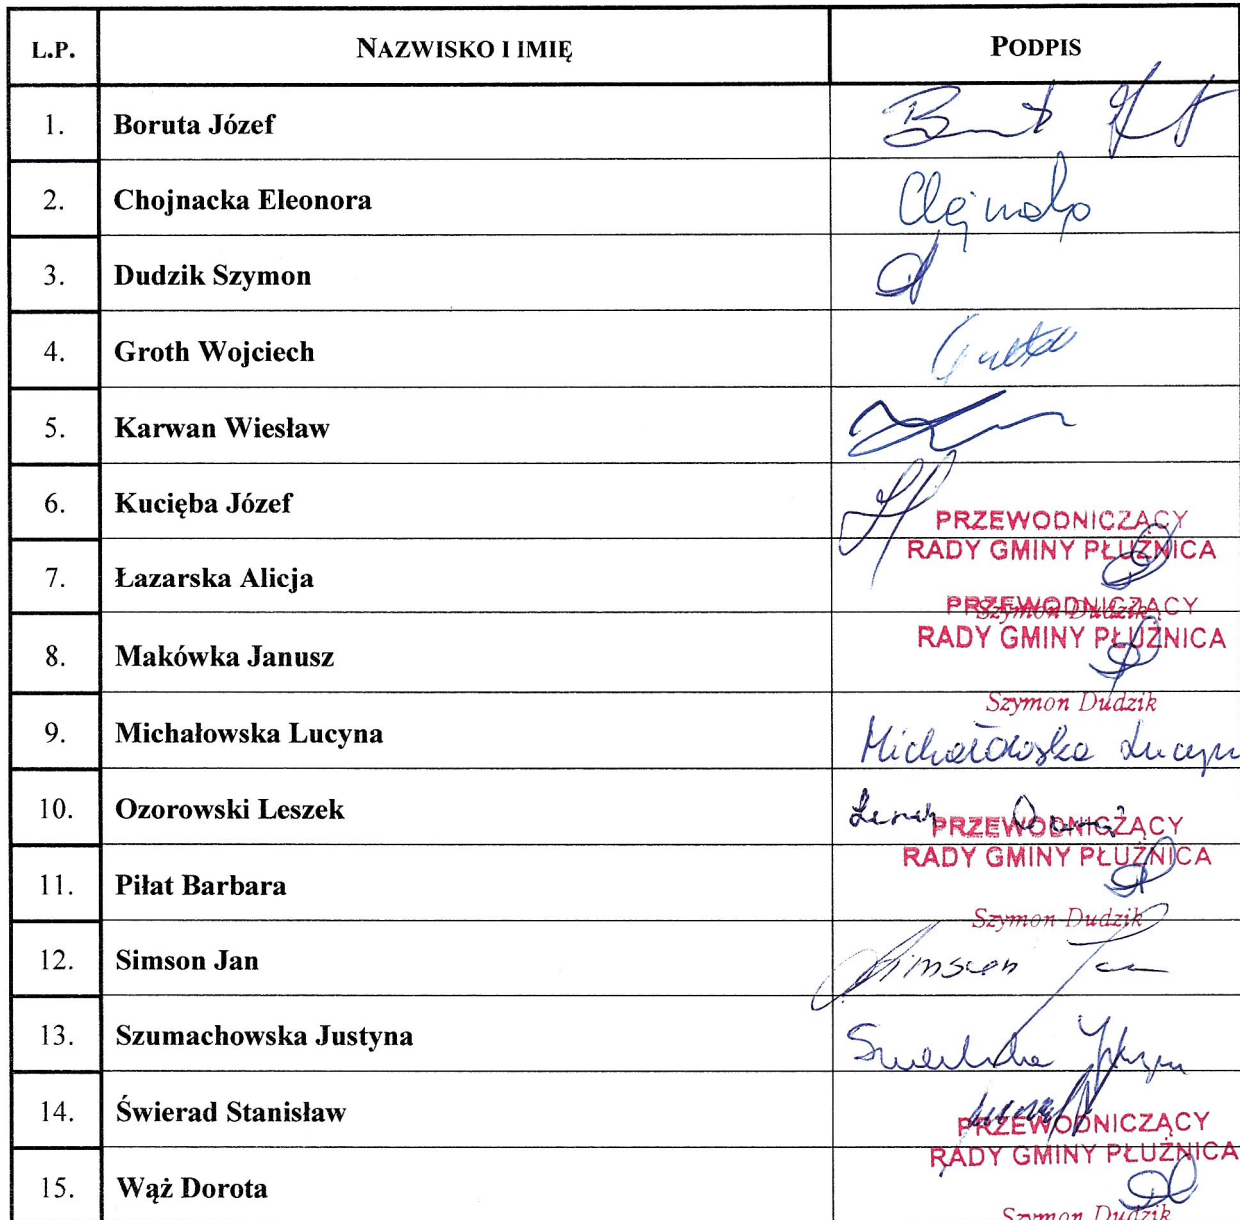 L.P. NAZWISKO I IMIĘ PODPIS
1. Boruta Józef
2. Chojnacka Eleonora
3. Dudzik Szymon
4. Groth Wojciech
5. Karwan Wiesław
6. Kucięba Józef
PRZEWODNICZĄCY
RADY GMINY PŁUŻNICA
7. Łazarska Alicja
Szymon Dudzik
PRZEWODNICZĄCY
RADY GMINY PŁUŻNICA
8. Makówka Janusz
Szymon Dudzik
9. Michałowska Lucyna Michałowska Lucyn
10. Ozorowski Leszek
PRZEWODNICZĄCY
RADY GMINY PŁUŻNICA
11. Piłat Barbara
Szymon Dudzik
12. Simson Jan Simson Jan
13. Szumachowska Justyna
14. Świerad Stanisław
PRZEWODNICZĄCY
RADY GMINY PŁUŻNICA
15. Wąż Dorota
Szymon Dudzik